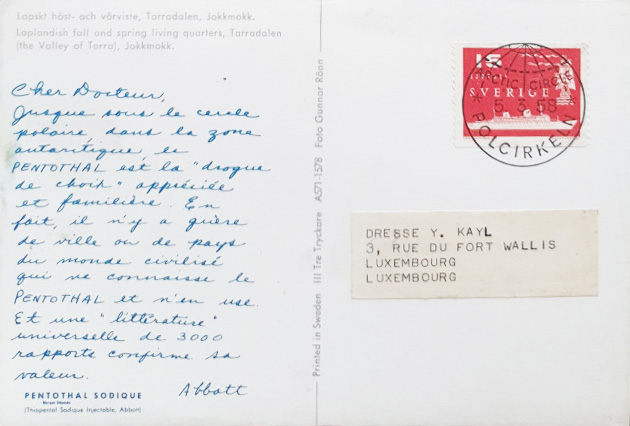 Lapskt höst- och vårviste, Tarradalen, Jokkmokk.
Laplandish fall and spring living quarters, Tarradalen
(the Valley of Tarra), Jokkmokk.
Cher Docteur,
Jusque sous le cercle
polaire, dans la zone
antarctique le
PENTOTHAL est la "drogue
de choix" appréciée
et familière. En
fait, il n'y a guère
de ville ou de pays
du monde civilisé
qui ne connaisse le
PENTOTHAL et n'en use.
Et une "littérature"
universelle de 3000
rapports confirme sa
valeur.
Abbott
PENTOTHAL SODIQUE
(Thiopental Sodique Injectable, Abbott)
Printed in Sweden III Tre Tryckare A571-1578 Foto Gunnar Rönn
15
SVERIGE
ARCTIC CIRCLE
5.3.58
POLCIRKELN
DRESSE Y. KAYL
3, RUE DU FORT WALLIS
LUXEMBOURG
LUXEMBOURG